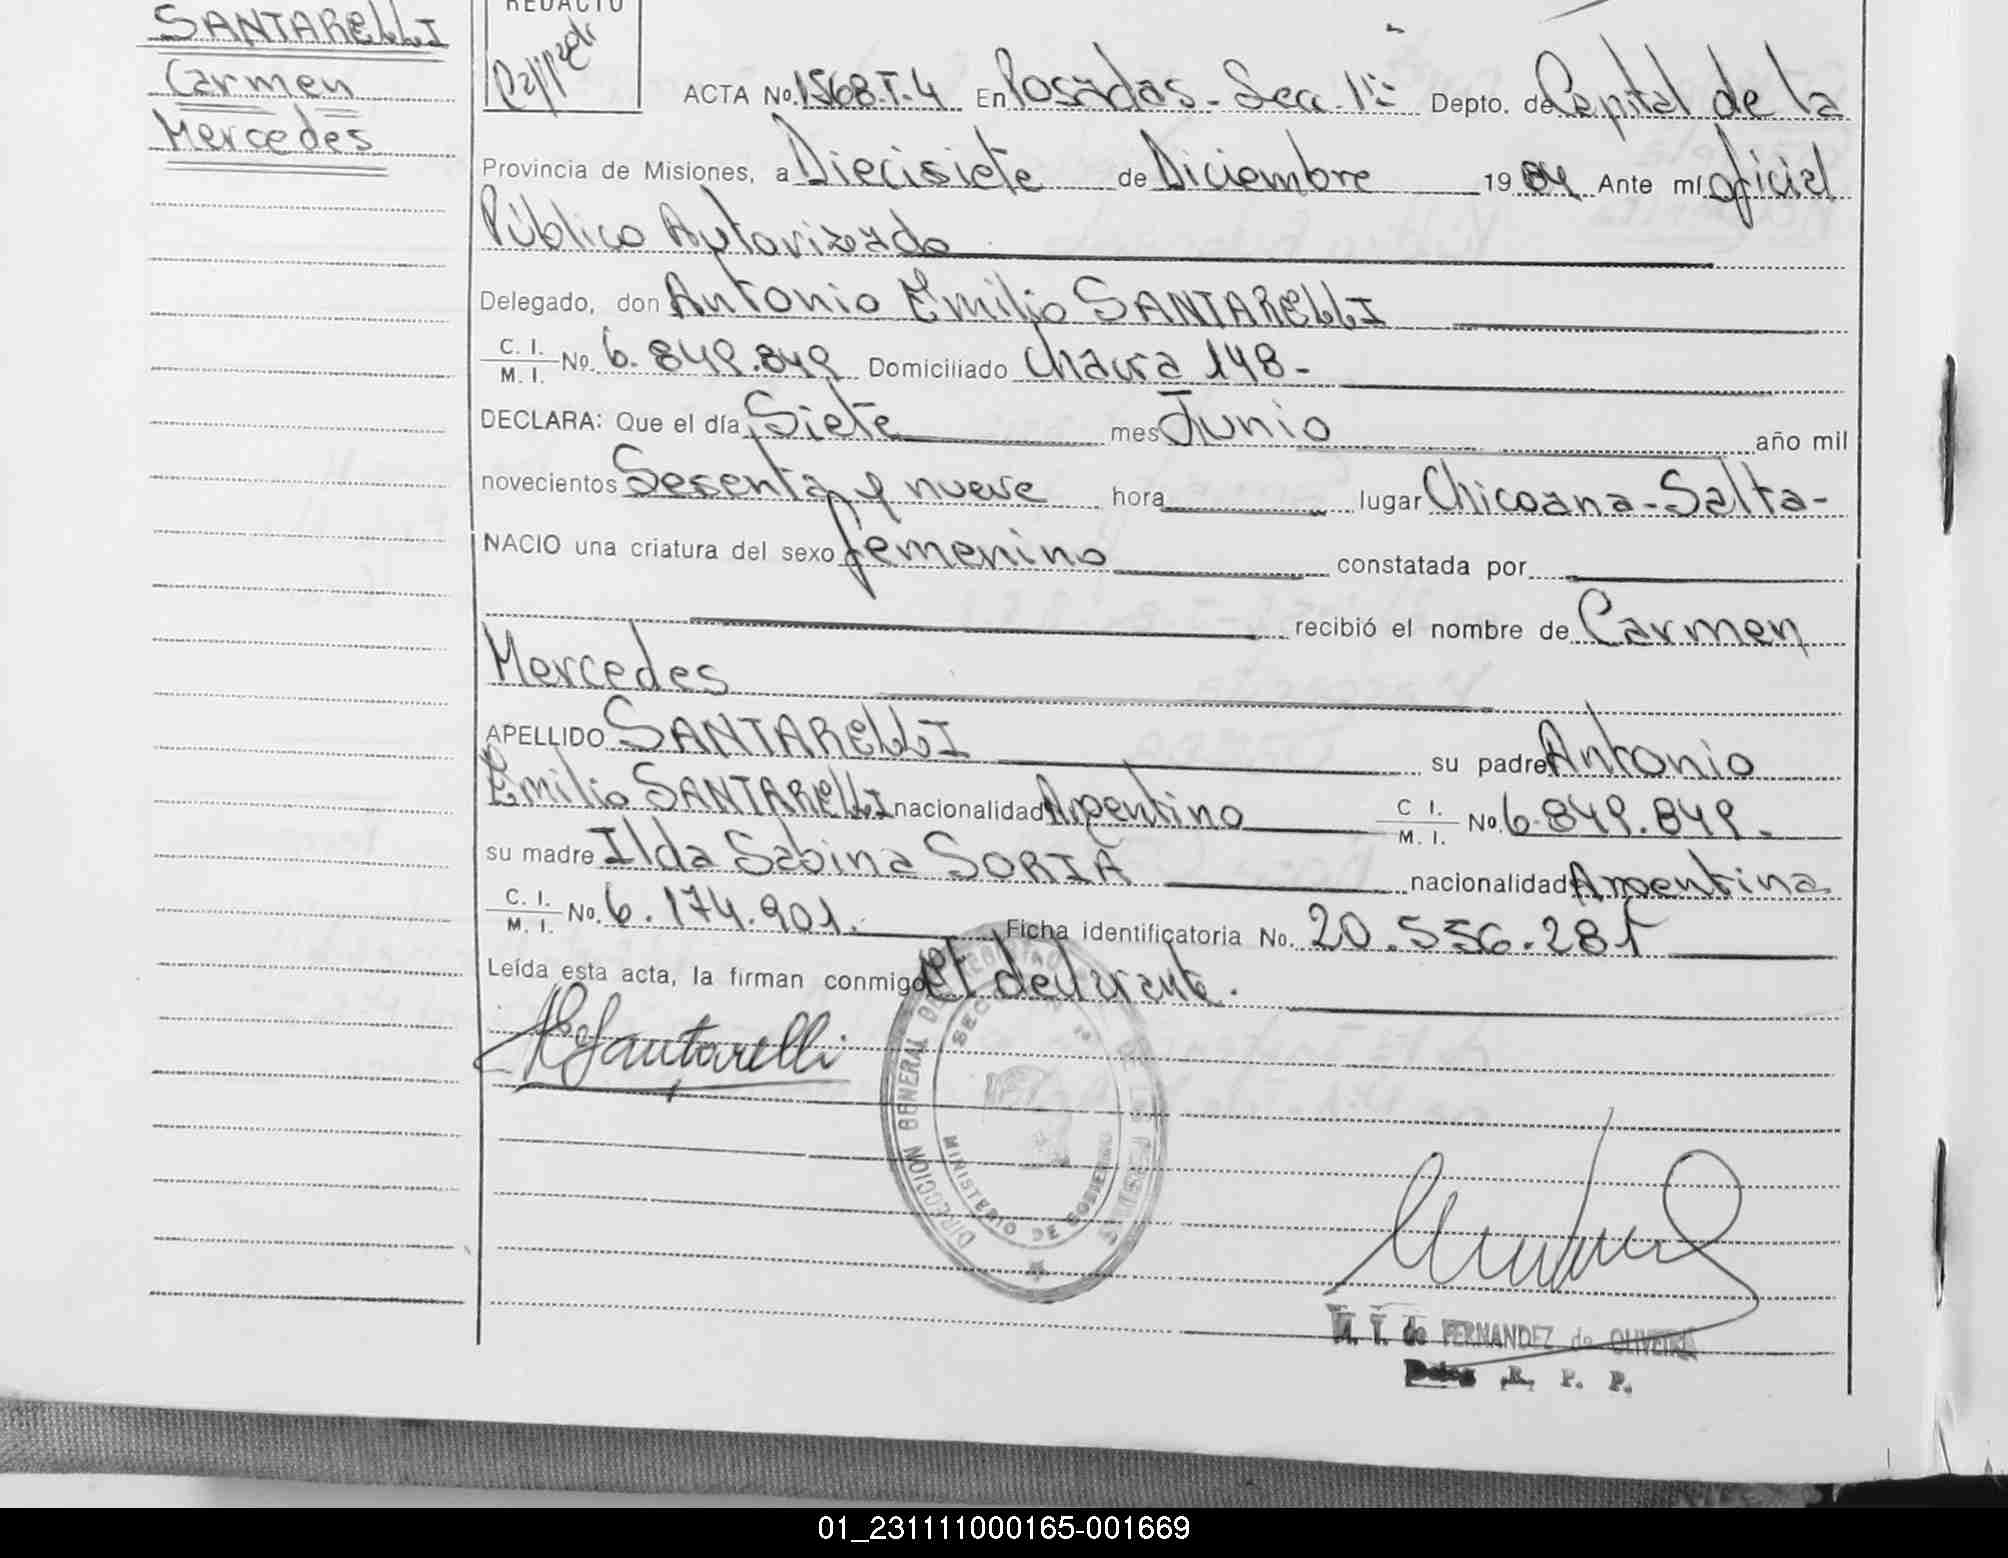 SANTARELLI
Carmen
Mercedes
REDACTO
ACTA No. 1568 T-4 En Posadas - Secc. 1ra Depto. de Capital de la
Provincia de Misiones, a Diecisiete de Diciembre 1984 Ante mí oficial
Público Autorizado
Delegado, don Antonio Emilio SANTARELLI
C. I. / M. I. No. 6.849.849 Domiciliado Chacra 148-
DECLARA: Que el día Siete mes Junio año mil
novecientos Sesenta y nueve hora lugar Chicoana-Salta-
NACIO una criatura del sexo femenino constatada por
recibió el nombre de Carmen
Mercedes
APELLIDO SANTARELLI su padre Antonio
Emilio SANTARELLI nacionalidad Argentino C I. / M. I. No. 6.849.849.
su madre Ilda Sabina SORIA nacionalidad Argentina
C. I. / M. I. No. 6.174.901. Ficha identificatoria No. 20.556.281
Leída esta acta, la firman conmigo el declarante.
AESantarelli
DIRECCION GENERAL DEL REGISTRO DE LAS PERSONAS
SECCION 1a
MINISTERIO DE GOBIERNO
M. T. de FERNANDEZ de OLIVEIRA
Deleg. R. P. P.
01_231111000165-001669